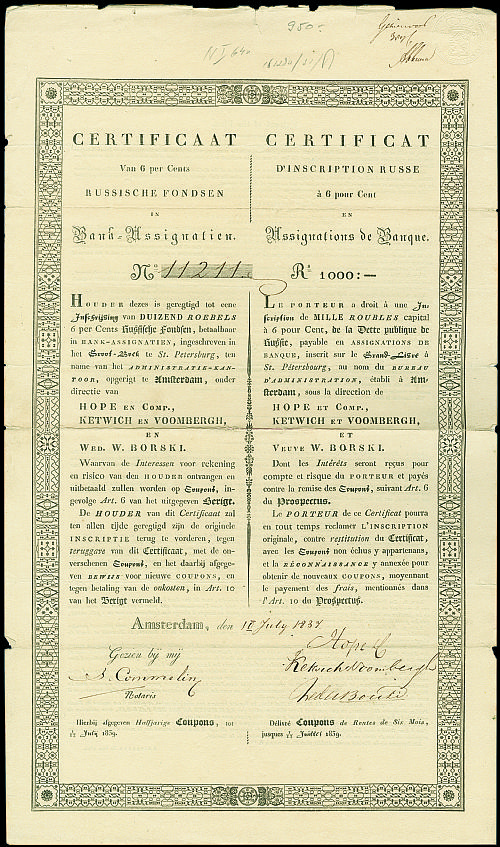 950-
CERTIFICAAT
Van 6 per Cents
RUSSISCHE FONDSEN
IN
Bank-Assignatien.
CERTIFICAT
D'INSCRIPTION RUSSE
à 6 pour Cent
EN
Assignations de Banque.
No. 11211.
Rs 1000:—
HOUDER dezes is geregtigd tot eene
Inschrijving van DUIZEND ROEBELS
6 per Cents Russische Fondsen, betaalbaar
in BANK-ASSIGNATIEN, ingeschreven in
het Groot-Boek te St. Petersburg, ten
name van het ADMINISTRATIE-KAN-
TOOR, opgerigt te Amsterdam, onder
directie van
HOPE EN COMP.,
KETWICH EN VOOMBERGH,
EN
WED. W. BORSKI.
Waarvan de Interessen voor rekening
en risico van den HOUDER ontvangen en
uitbetaald zullen worden op Coupons, in-
gevolge Art. 6 van het uitgegeven Berigt.
De HOUDER van dit Certificaat zal
ten allen tijde geregtigd zijn de originele
INSCRIPTIE terug te vorderen, tegen
teruggave van dit Certificaat, met de on-
verschenen Coupons, en het daarbij afgege-
ven BEWIJS voor nieuwe COUPONS, en
tegen betaling van de onkosten, in Art. 10
van het Berigt vermeld.
LE PORTEUR a droit à une In-
scription de MILLE ROUBLES capital
à 6 pour Cent, de la Dette publique de
Russie, payable en ASSIGNATIONS DE
BANQUE, inscrit sur le Grand-Livre à
St. Pétersbourg, au nom du BUREAU
D'ADMINISTRATION, établi à Am-
sterdam, sous la direction de
HOPE ET COMP.,
KETWICH ET VOOMBERGH,
ET
VEUVE W. BORSKI.
Dont les Intérêts seront reçus pour
compte et risque du PORTEUR et payés
contre la remise des Coupons, suivant Art. 6
du Prospectus.
Le PORTEUR de ce Certificat pourra
en tout temps reclamer L'INSCRIPTION
originale, contre restitution du Certificat,
avec les Coupons non échus y appartenans,
et la RÉCONNAISSANCE y annexée pour
obtenir de nouveaux COUPONS, moyennant
le payement des frais, mentionnés dans
l'Art. 10 du Prospectus.
Amsterdam, den July 1837
Gezien bij mij
S. Commelin
Notaris
Hope &
Ketwich & Voombergh
Wed W Borski
Hierbij afgegeven Halfjarige Coupons, tot
1/13 July 1859.
Délivré Coupons de Rentes de Six Mois,
jusques 1/13 Juillet 1859.